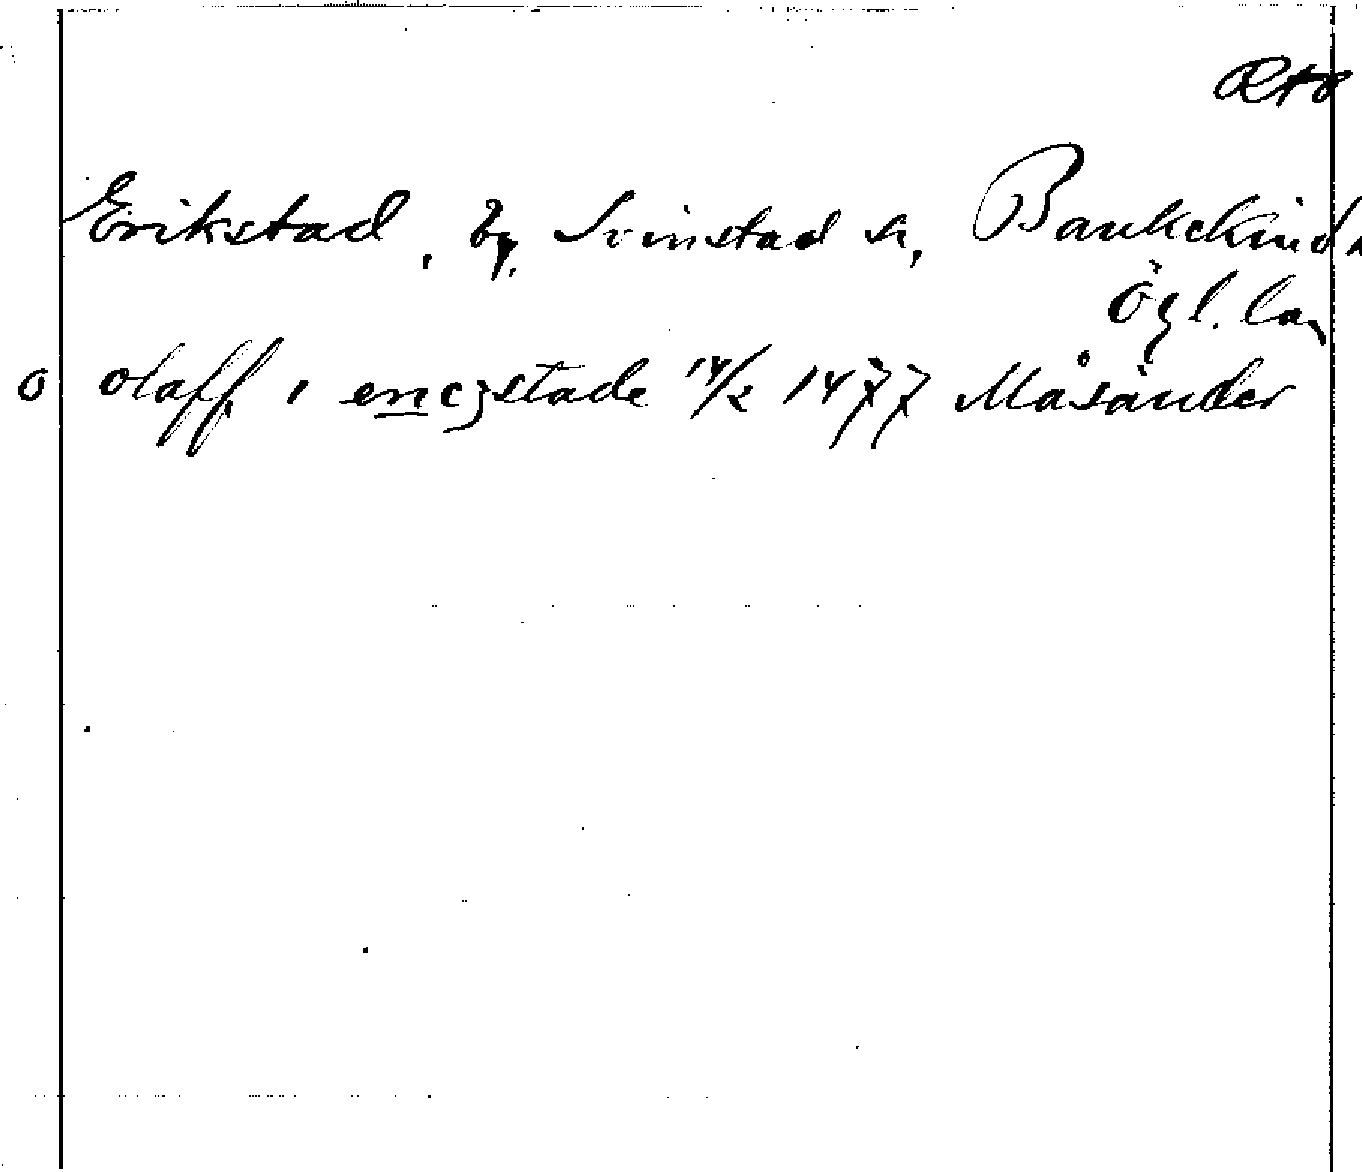 Erikstad, by, Svinstad sn, Bankekind
Ögl. län
o olaff i enczstade 14/2 1477 Måsänder